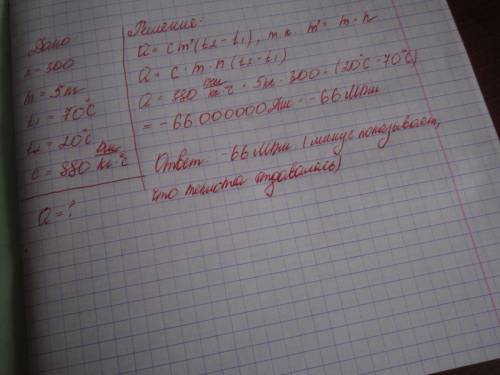 Дано
n = 300
m = 5 кг
t₁ = 70°C
t₂ = 20°C
c = 880 Дж/кг·°C
Q = ?
Решение:
Q = cm'(t₂ - t₁), т.к. m' = m · n
Q = c · m · n (t₂ - t₁)
Q = 880 Дж/кг·°C · 5 кг · 300 · (20°C - 70°C)
= -66 000000 Дж = -66 МДж
Ответ: -66 МДж (минус показывает,
что теплота отдавалась)